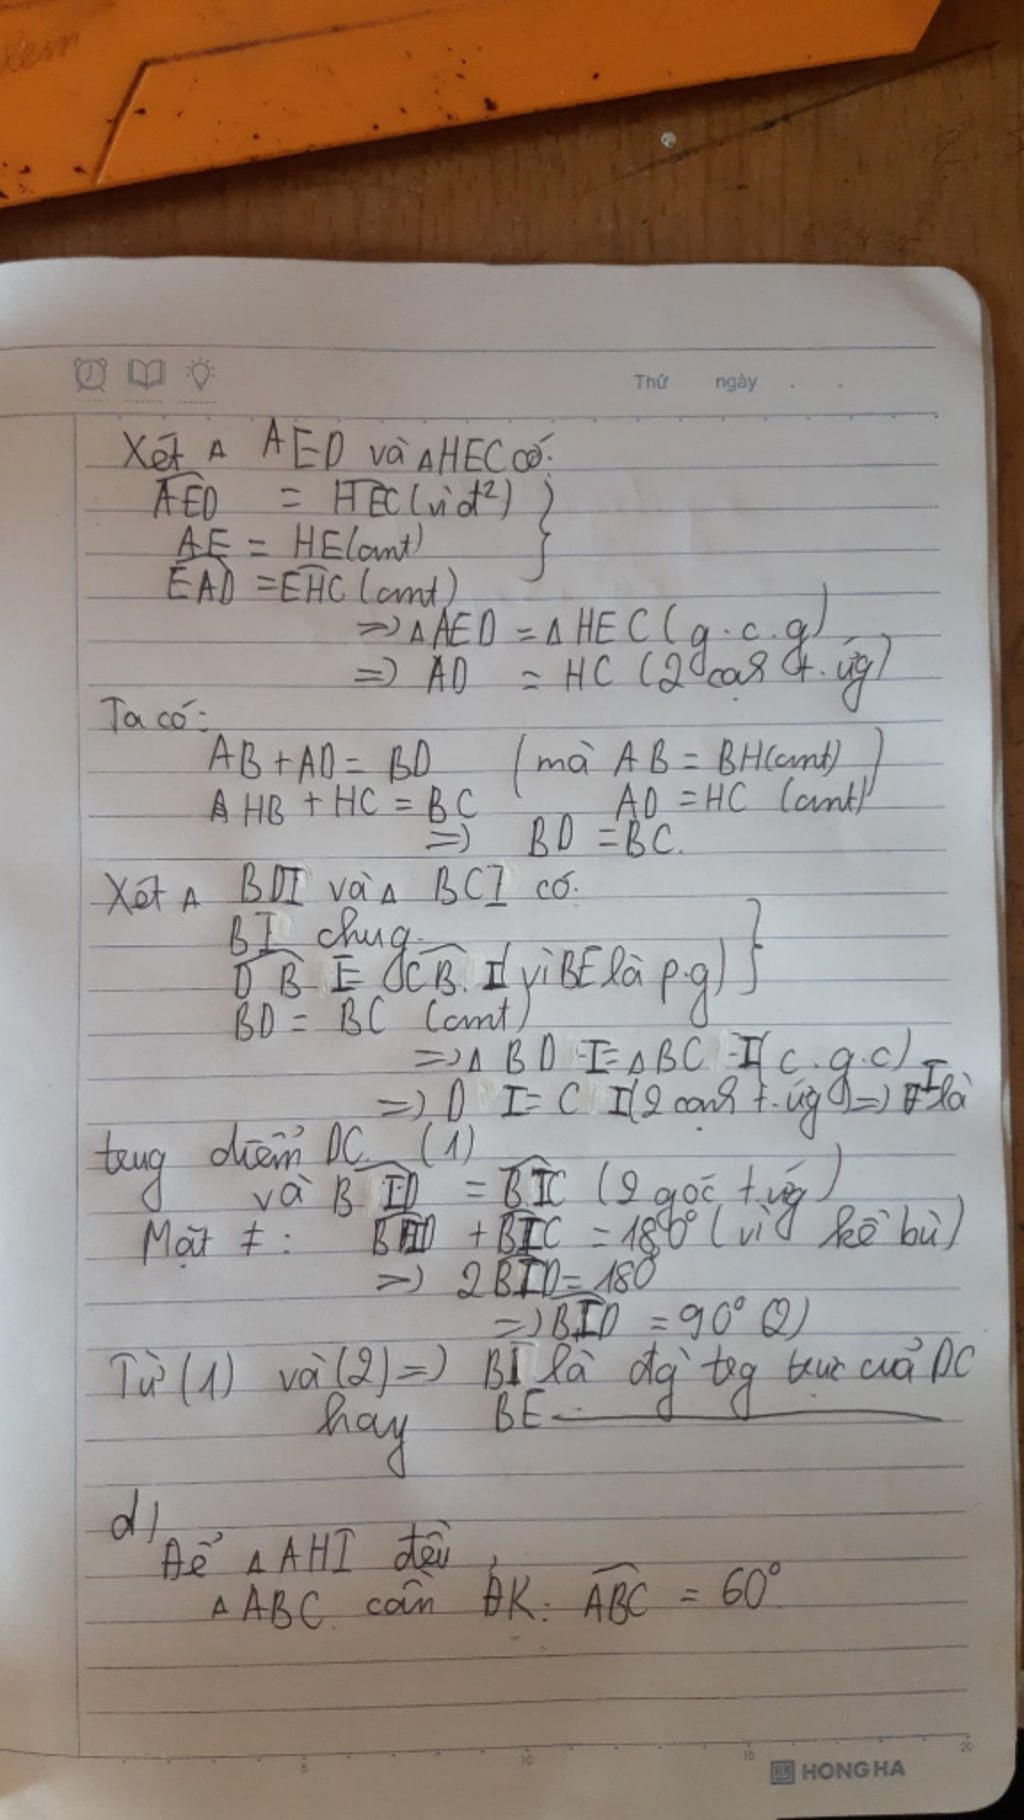 Thứ ngày
Xét Δ AED và ΔHEC có:
AED = HEC (vì đ²)
AE = HE (cmt)
EAD = EHC (cmt)
=> Δ AED = Δ HEC (g.c.g)
=> AD = HC (2 cạh t.ứg)
Ta có:
AB + AD = BD (mà AB = BH (cmt)
HB + HC = BC AD = HC (cmt)
=> BD = BC.
Xét Δ BDI và Δ BCI có.
BI chug.
DBI = CBI (vì BE là p.g)
BD = BC (cmt)
=> Δ BDI = Δ BCI (c.g.c)
=> DI = CI (2 cạh t.ứg) => I là
trug điểm DC. (1)
và BID = BIC (2 góc t.ứg)
Mặt ≠: BID + BIC = 180° (vì kề bù)
=> 2BID = 180
=> BID = 90° (2)
Từ (1) và (2) => BI là đg trg trực của DC
hay BE
d)
Để Δ AHI đều
Δ ABC cần ĐK: ABC = 60°
5 10 15 20
HONG HA